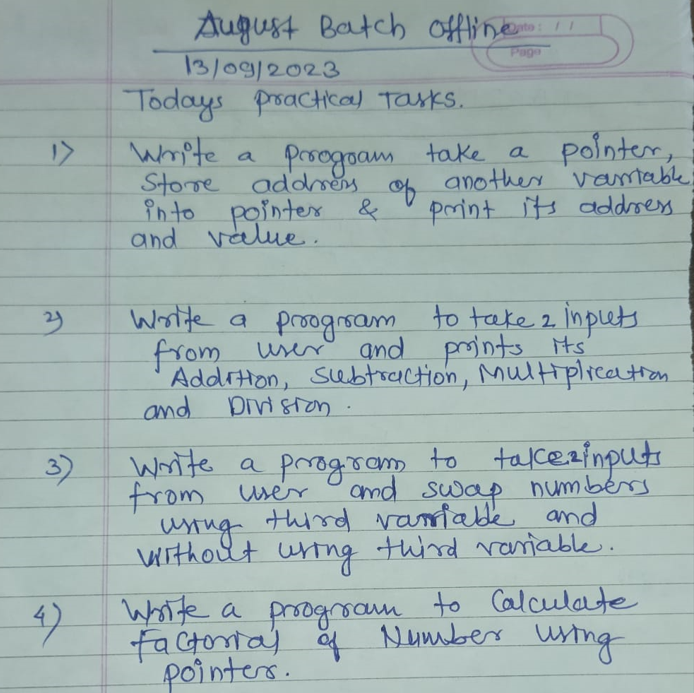 August Batch offline
Date: / /
Page
13/09/2023
Todays practical Tasks.
1) Write a program take a pointer,
Store address of another variable
into pointer & print its address
and value.
2) Write a program to take 2 inputs
from user and prints its
Addition, Subtraction, Multiplication
and Division.
3) Write a program to take 2 inputs
from user and swap numbers
using third variable and
without using third variable.
4) Write a program to Calculate
factorial of Number using
pointers.